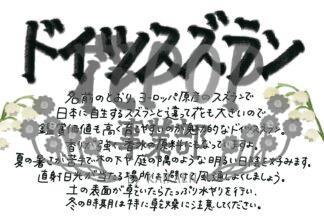 ドイツスズラン
名前のとおり、ヨーロッパ原産のスズランで
日本に自生するスズランと違って花も大きいので
鑑賞価値も高く育るやすいのが魅力的なドイツスズラン。
香りが強く、香水の原料にもなっていますよ。
夏の暑さが苦手で木の下や庭の隅のような明るい日陰を好みます。
直射日光が当たる場所は避けて風通しよくしましょう。
土の表面が乾いたらたっぷり水やりを行い、
冬の時期は特に乾燥に注意してください。